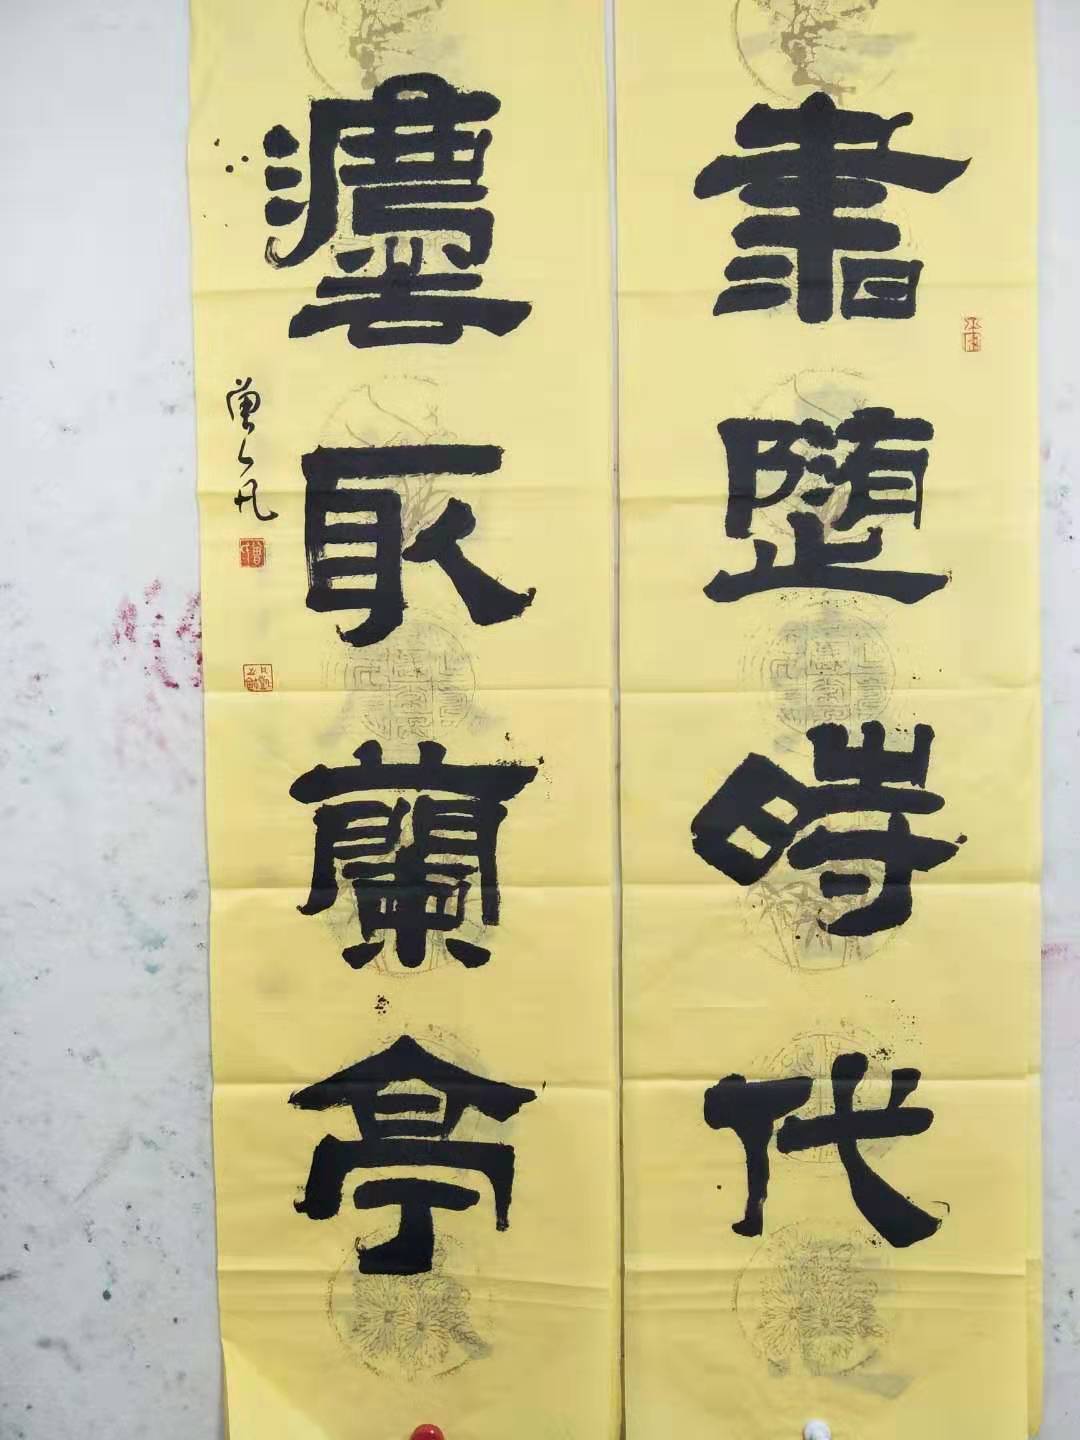 書隨時代
灋取蘭亭
曾凡